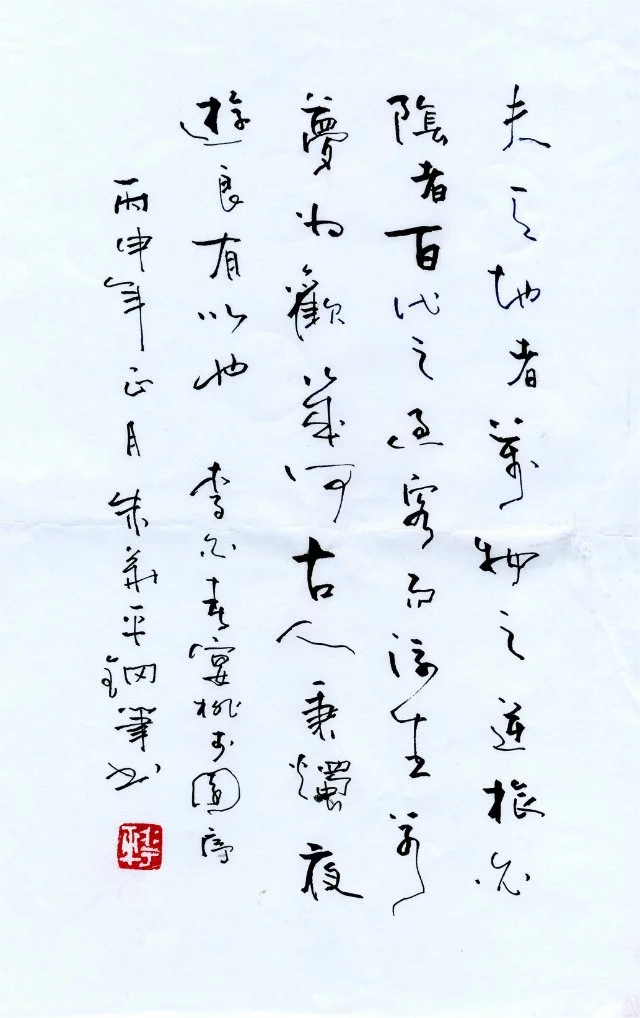 夫天地者萬物之逆旅光
陰者百代之過客而浮生若
夢為歡幾何古人秉燭夜
遊良有以也 李白春宴桃李園序
丙申年正月朱華平鋼筆書